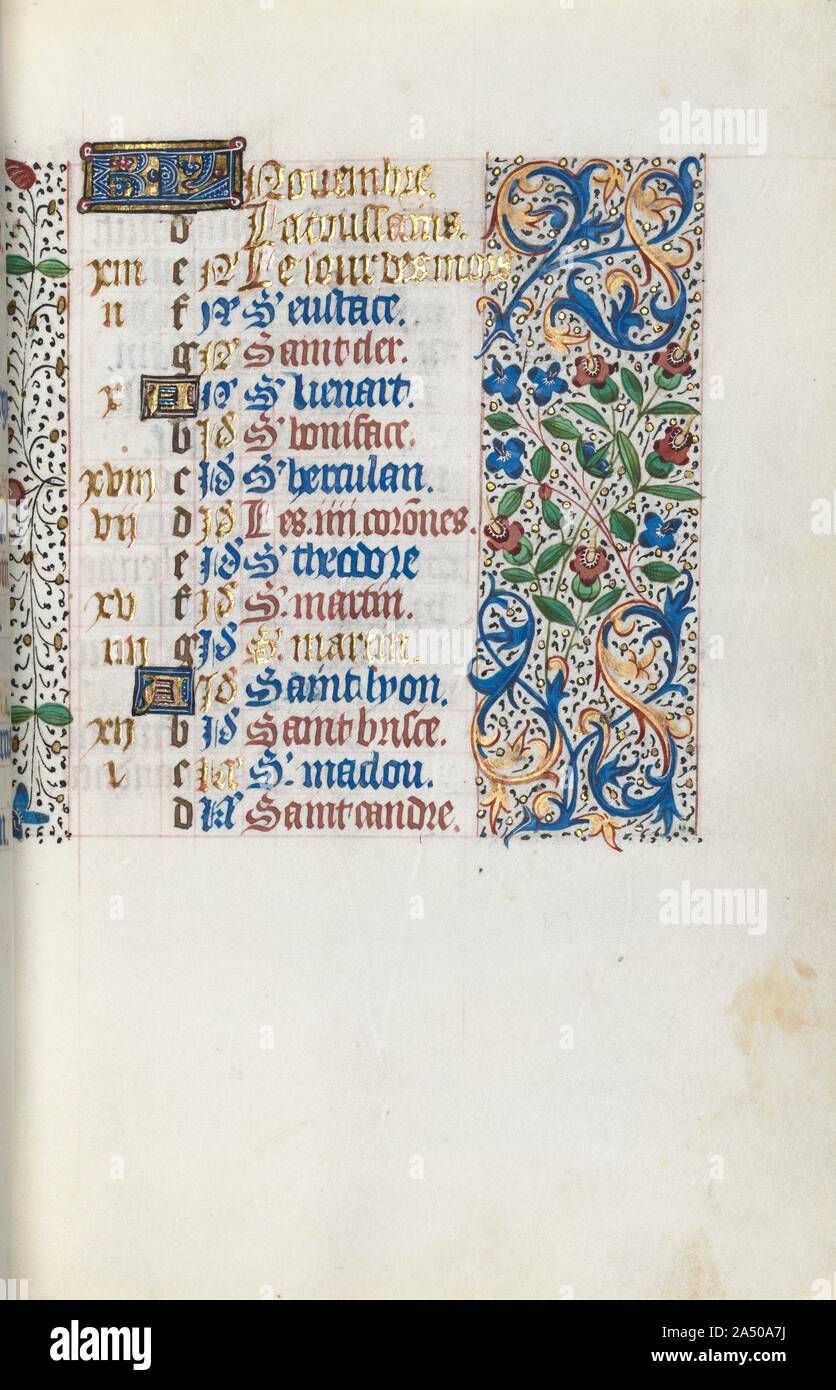 KL Nouembre.
d La toussains.
xiii e N Le iour des mors
ii f N S' eustace.
g N Saint der.
x A N S' lienart.
b Id S' boniface.
xviii c Id S' herculan.
vii d Id Les .iiii. coro͂nes.
e Id S' theodre
xv f Id S'. martin.
iiii g Id S'. martin.
A Id Saint lyon.
xii b Id Saint brisce.
v c kl' S'. maclou.
d kl' Saint candre.
alamy
alamy
alamy
alamy
Image ID: 2A50A7J
www.alamy.com